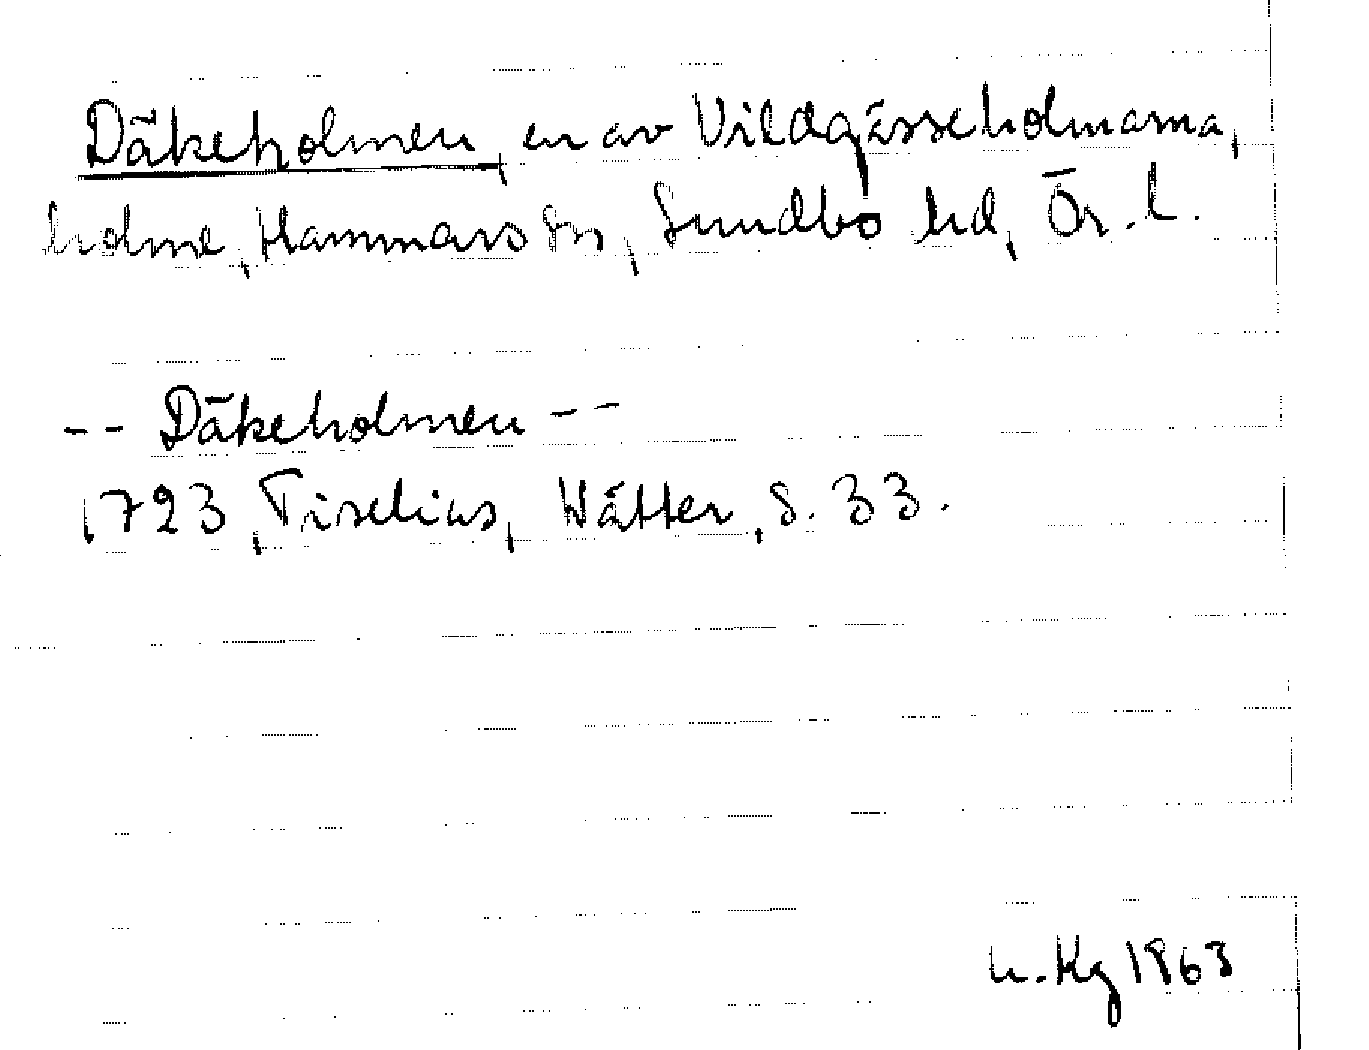 Däkeholmen, en av Vildgässeholmarna,
holme, Hammars sn, Sundbo hd, Ör. l.
-- Däkeholmen --
1723, Tiselius, Wätter, s. 33.
u. Kg 1963